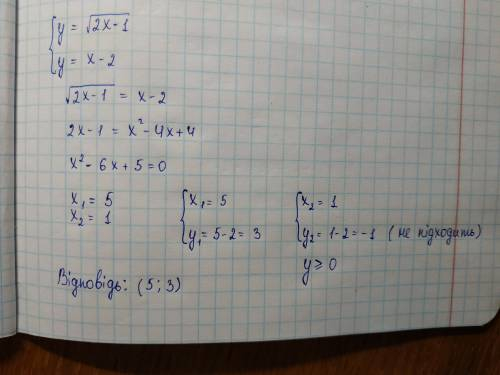 y = √2x-1
y = x-2
√2x-1 = x-2
2x-1 = x²-4x+4
x²-6x+5=0
x₁ = 5
x₂ = 1
x₁ = 5
y₁ = 5-2 = 3
x₂ = 1
y₂ = 1-2 = -1 (не підходить)
y ≥ 0
Відповідь: (5; 3)